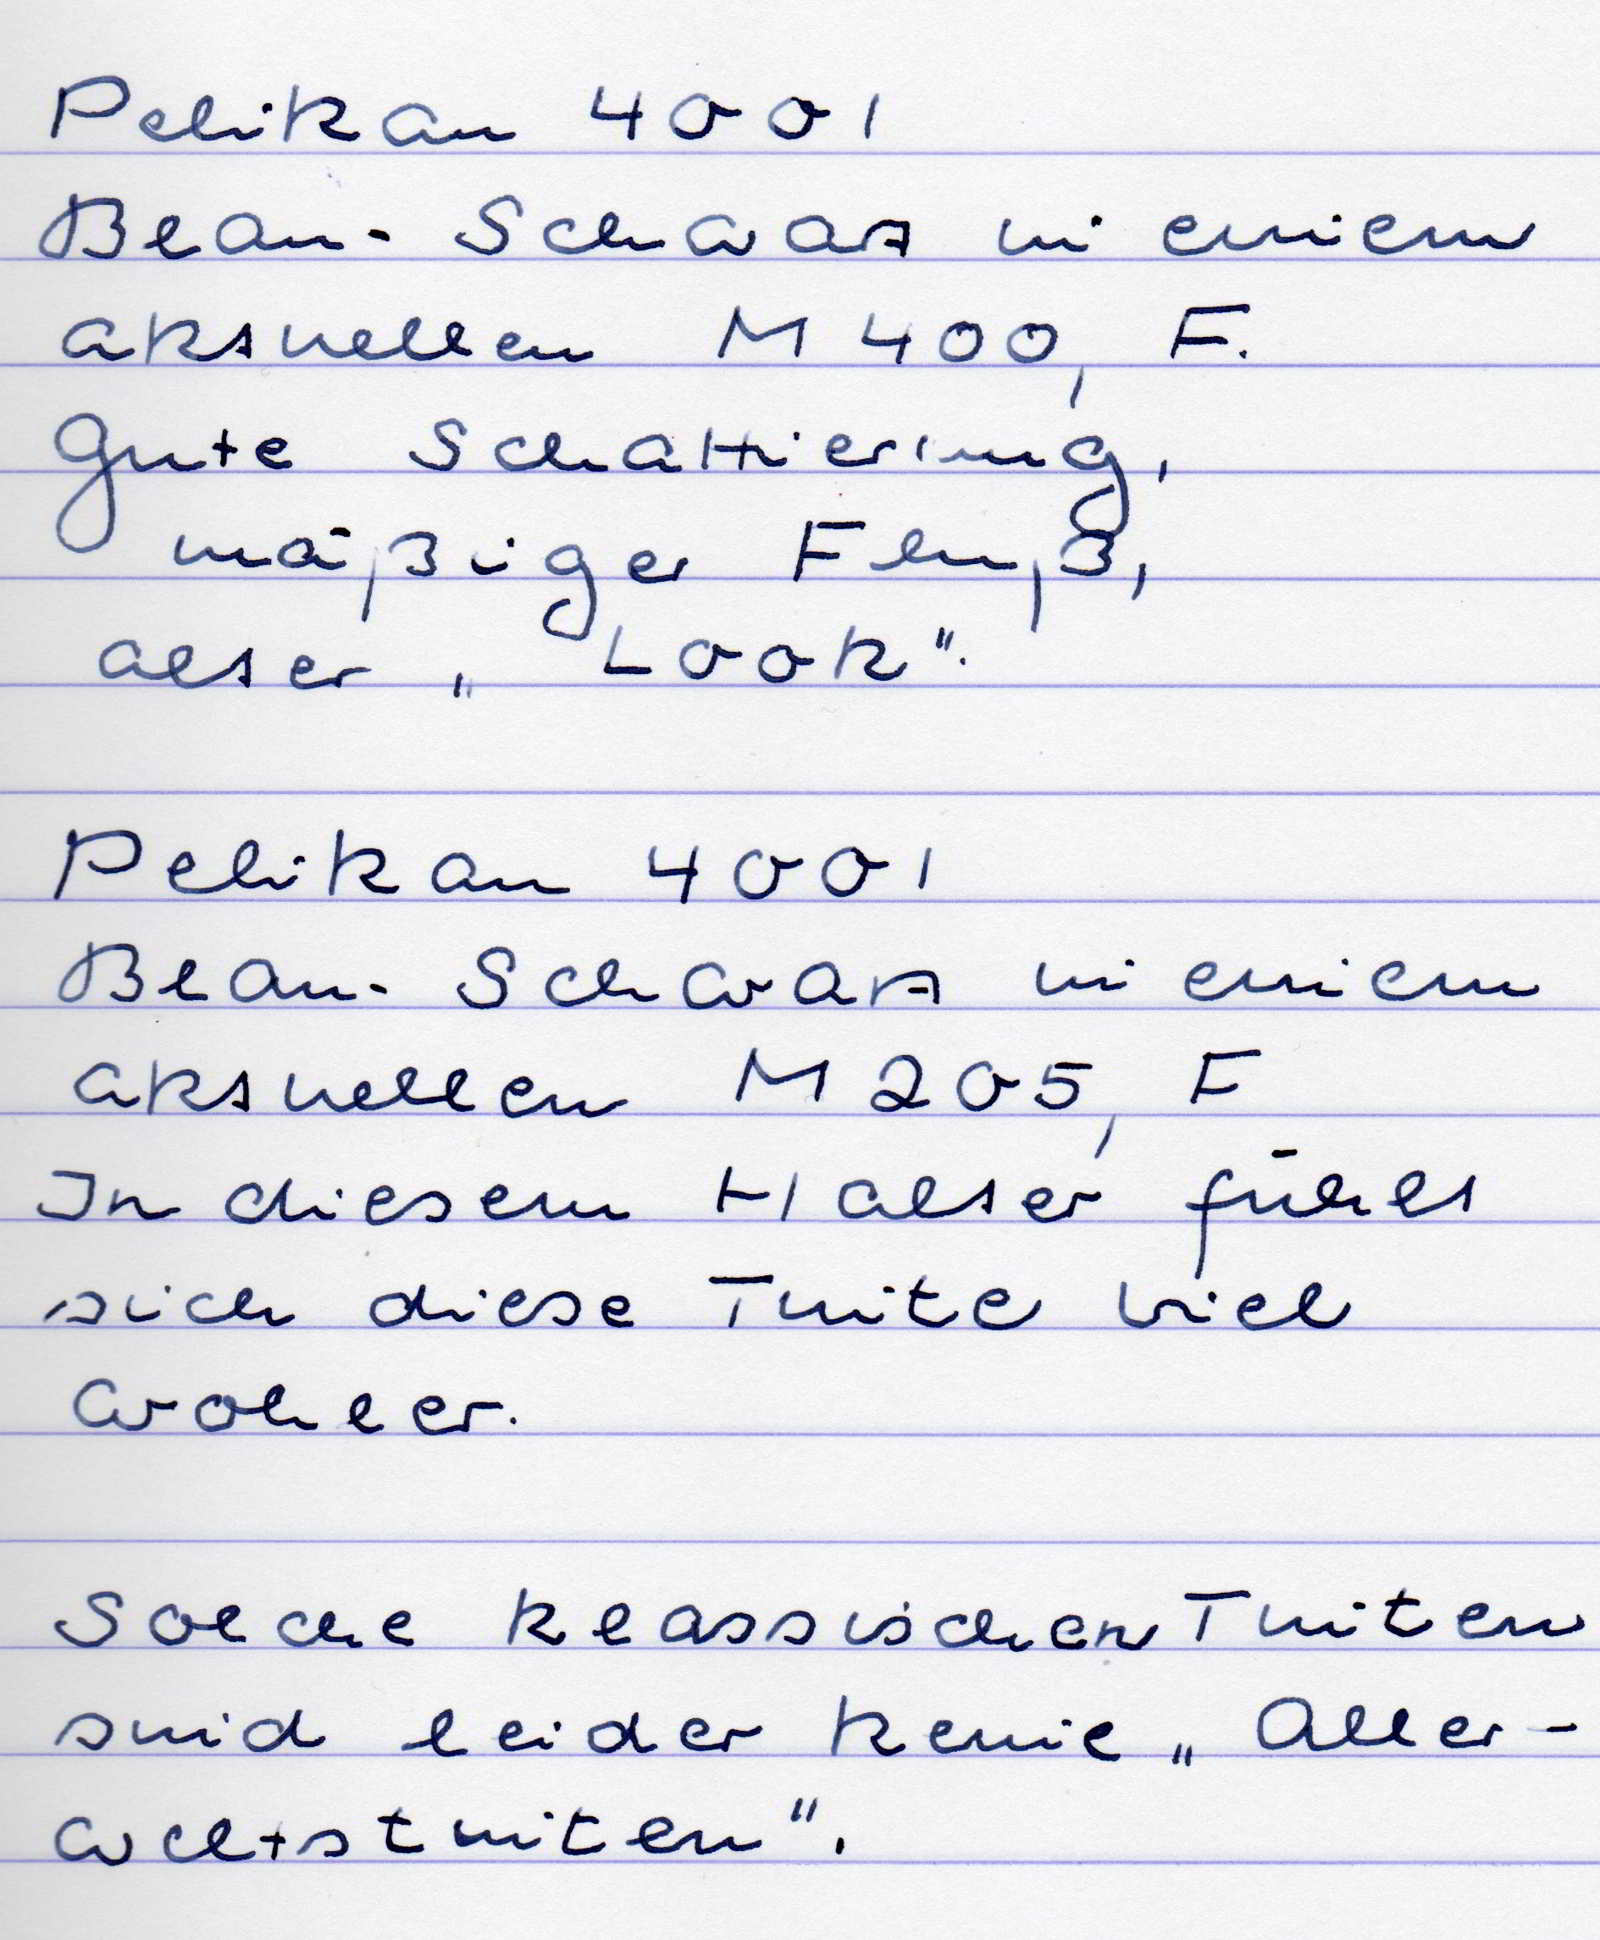 Pelikan 4001
Blau-Schwarz in einem
aktuellen M400, F.
Gute Schattierung,
mäßiger Fluß,
alter „Look".
Pelikan 4001
Blau-Schwarz in einem
aktuellen M205, F
In diesem Halter fühlt
sich diese Tinte viel
wohler.
Solche klassischen Tinten
sind leider keine „Aller-
weltstinten".